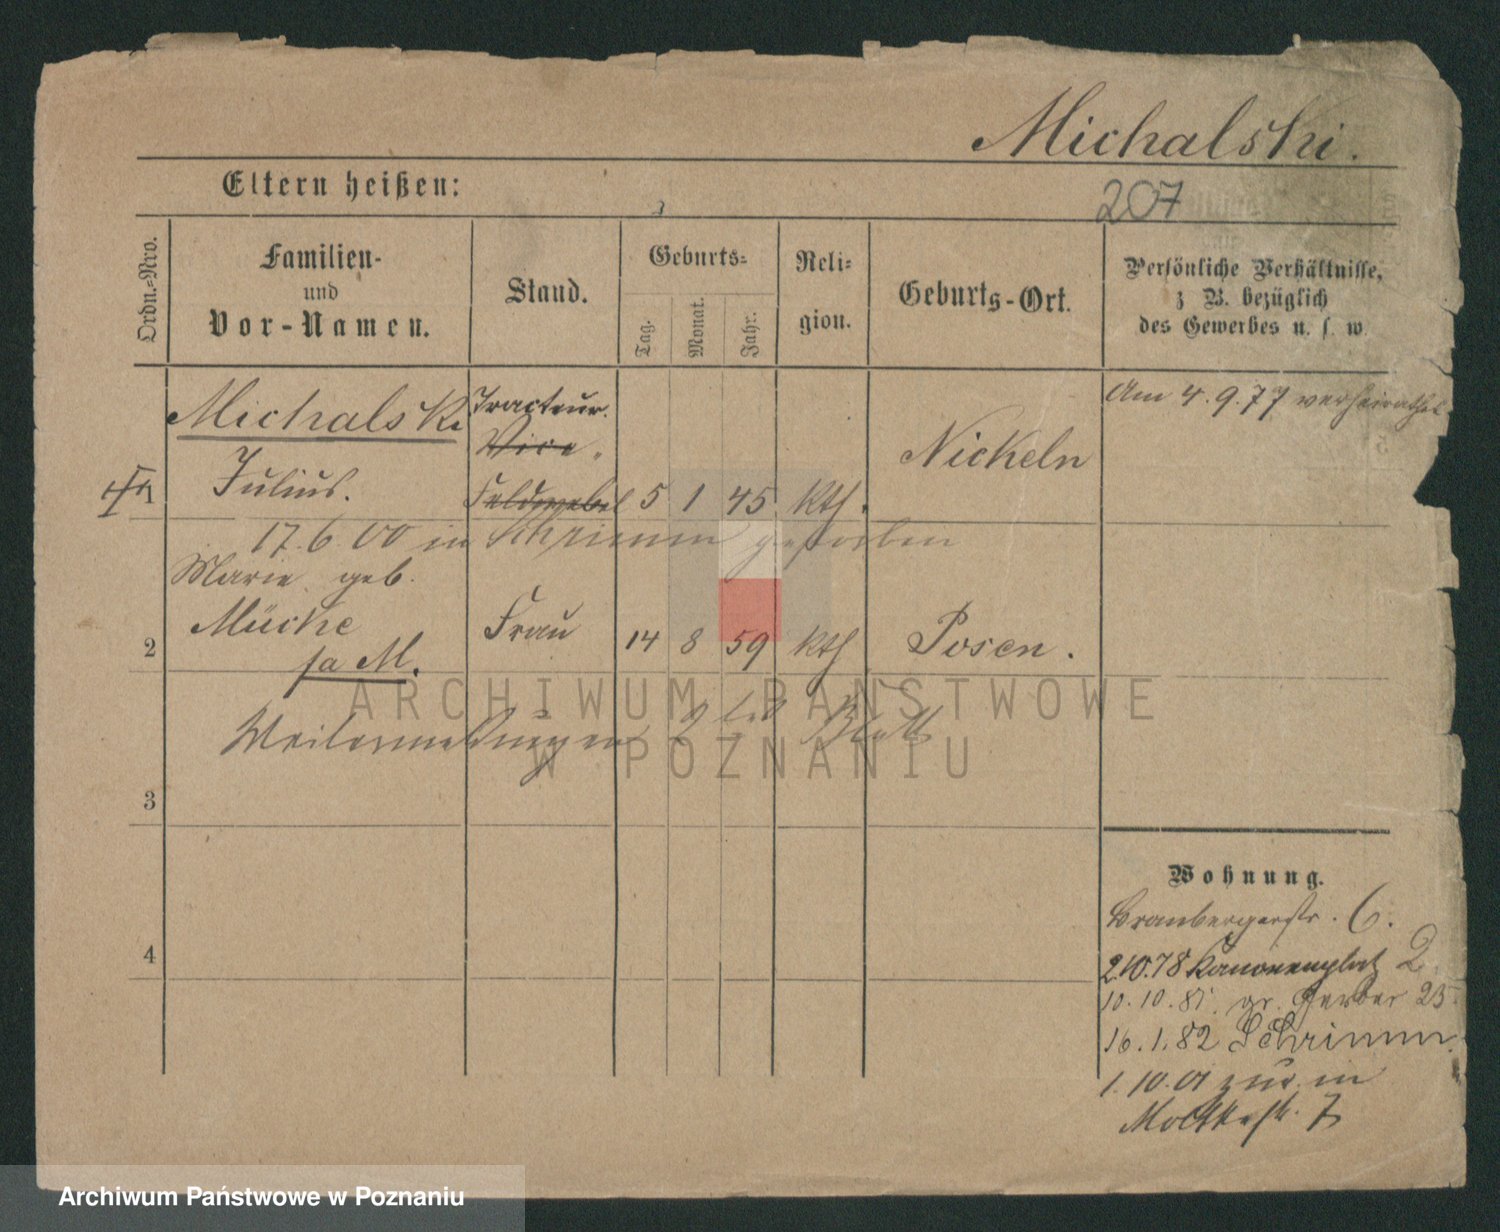 Michalski.
Eltern heißen:
207
Ordn.=Nro.
Familien-
und
Vor-Namen.
Stand.
Geburts=
Tag.
Monat.
Jahr.
Reli=
gion.
Geburts-Ort.
Persönliche Verhältnisse,
z B. bezüglich
des Gewerbes u. s. w.
Michalski
Julius.
Tracteur.
Vice
Feldwebel
5 1 45 kth.
Nickeln
Am 4.9.77 verheirathet
17.6.00 in Schrimm gestorben
2
Marie geb.
Mücke
sa M.
Frau
14 8 59 kth
Posen.
3
4
Wohnung.
6.
2.10.78 Kanonenplatz 2.
10.10.81. gr. Gerber 25
16.1.82 Schrimm.
1.10.01 zur. in
Moltkestr. 7
ARCHIWUM PAŃSTWOWE
W POZNANIU
Archiwum Państwowe w Poznaniu